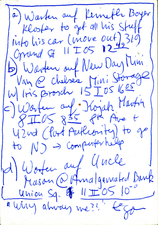 a) Warten auf Kenneth Boyer
Kloster to get all his stuff
into his car (move out) 319
Grand St 11 I 05 12 42
b) Warten auf New Day Mini
Van @ Chelsea Mini Storage
w/ Iris Brooks 15 I 05 16 25
c) Warten auf Kojak Martin
8 II 05 8 35 8th Ave +
42nd (Port Authority) to go
to N) → computer help
d) Warten auf Uncle
Mason @ Amalgamated Bank
Union Sq 11 II 05 10
"Why always me??"